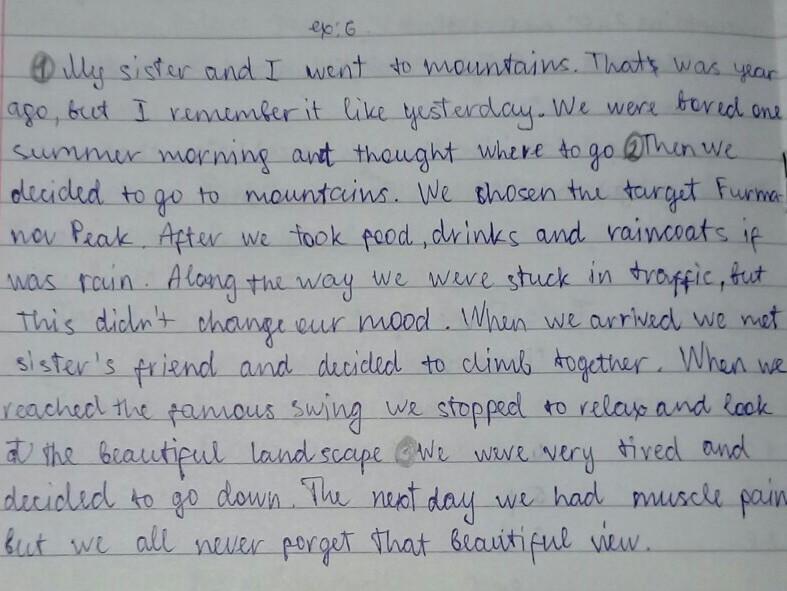 ex: 6
① My sister and I went to mountains. That's was year
ago, but I remember it like yesterday. We were bored one
summer morning and thought where to go ② Then we
decided to go to mountains. We chosen the target Furma-
nov Peak. After we took food, drinks and raincoats if
was rain. Along the way we were stuck in traffic, but
this didn't change our mood. When we arrived we met
sister's friend and decided to climb together. When we
reached the famous swing we stopped to relax and look
at the beautiful landscape ③ We were very tired and
decided to go down. The next day we had muscle pain
but we all never forget that beautiful view.